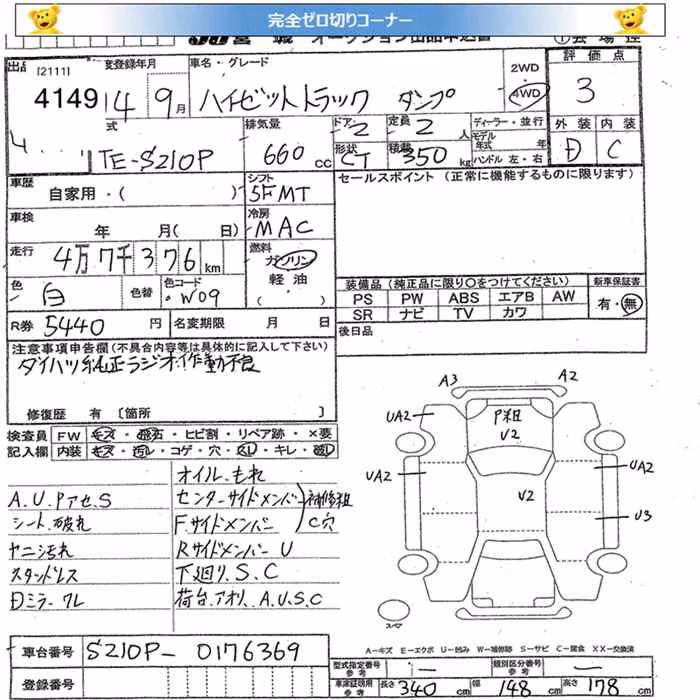 完全ゼロ切りコーナー
出品 [2111]
4149
初度登録年月
14年 9月
車名・グレード
ハイゼットトラック ダンプ
2WD
4WD
評価点
3
型式
TE-S210P
排気量
660 cc
ドア 2
定員 2 人
形状 CT
積載 350 kg
ディーラー・並行
モデル年式 年
ハンドル 左・右
外装 内装
D C
車歴
自家用・( )
シフト
5FMT
セールスポイント (正常に機能するものに限ります)
車検
年 月( 日)
冷房
MAC
走行
4万7千376 km
燃料
ガソリン
軽油
( )
色
白
色替
色コード
W09
装備品 (純正品に限り○をつけてください)
PS PW ABS エアB AW
SR ナビ TV カワ
新車保証書
有・無
R券 5440 円
名変期限 月 日
後日品
注意事項申告欄(不具合内容等は具体的に記入して下さい)
ダイハツ純正ラジオ作動不良
修復歴 有 〔箇所 〕
検査員 FW キズ・飛石・ヒビ割・リペア跡・×要
記入欄 内装 キズ・汚レ・コゲ・穴・ ・キレ・
オイルもれ
A.U.PアセS
センターサイドメンバー
補修粗
シート破れ
F.サイドメンバー
C穴
ヤニ汚れ
RサイドメンバーU
スタンドレス
下廻り.S.C
Dミラーワレ
荷台.アオリ.A.U.S.C
A3
A2
UA2
P粗
V2
UA2
UA2
V2
UA2
U3
スペア
A-キズ E-エクボ U-凹み W-補修跡 S-サビ C-腐食 XX-交換済
車台番号 S210P-0176369
登録番号
型式指定番号 参考 —
類別区分番号 参考 —
車庫証明用 参考
長さ 340 cm
幅 148 cm
高さ 178 cm